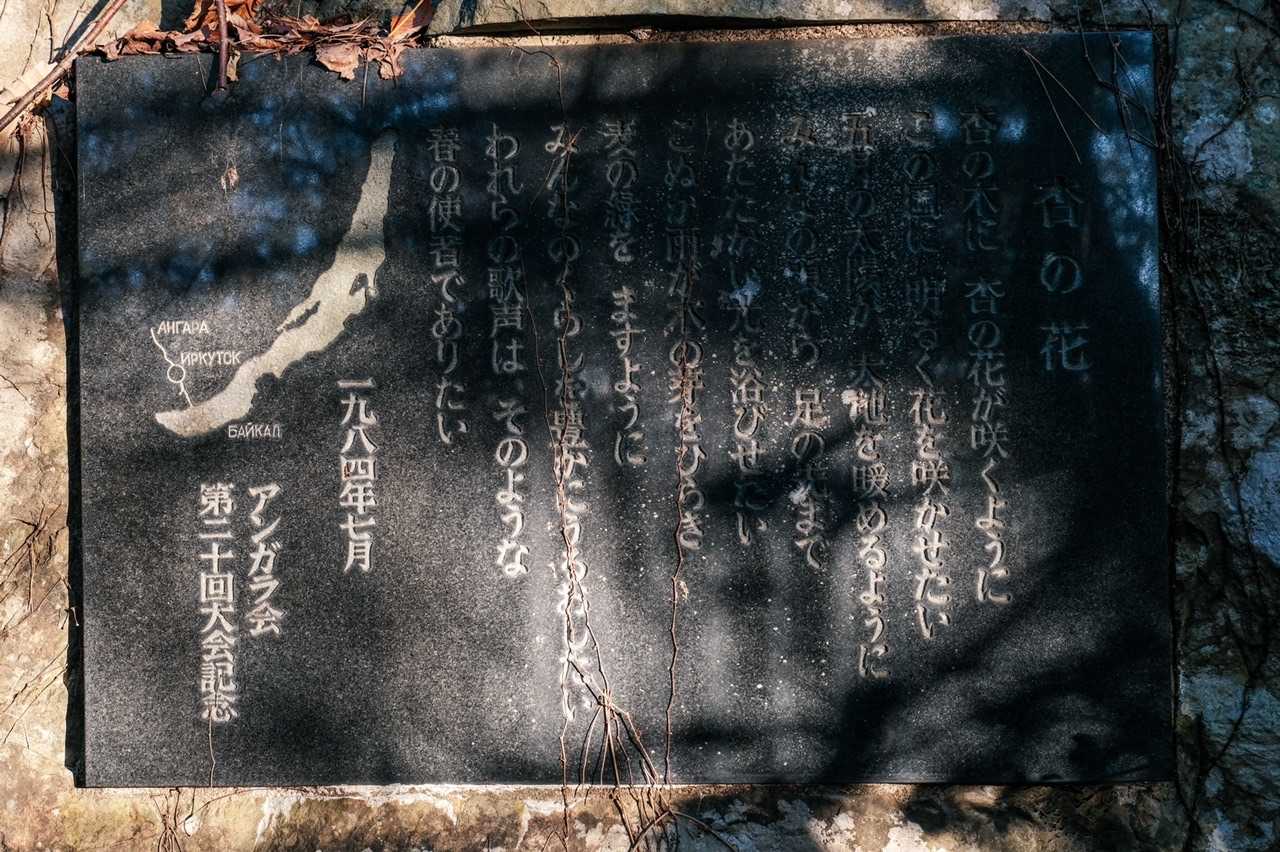 杏の花
杏の木に 杏の花が咲くように
この国に 明るく花を咲かせたい
五月の太陽が 大地を暖めるように
みんなの頭から 足の先まで
あたたかい光を浴びせたい
こぬか雨が木の芽をひらき
麦の緑を ますように
みんなのくらしを豊かにうるおしたい
われらの歌声は、そのような
春の使者でありたい
一九八四年七月
アンガラ会
第二十回大会記志
АНГАРА
ИРКУТСК
БАЙКАЛ